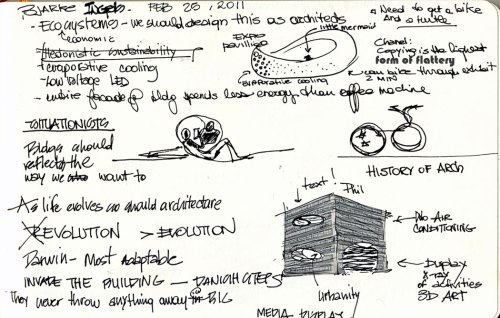 BJARKE Ingels - FEB 28, 2011
- Ecosystems - we should design this as architects
economic
Hedonistic Sustainability
- evaporative cooling
- low voltage LED
- entire facade of bldg spends less energy than coffee machine
EXPO pavilion
little mermaid
evaporative cooling
Need to get a bike
And a turtle
Chanel:
Copying is the highest
form of flattery
can bike through exhibit
2 MIN
SITUATIONISTS
Bldgs should
reflect the
way we want to
HISTORY OF ARCH
As life evolves so should architecture
REVOLUTION > EVOLUTION
Darwin - Most adaptable
INVADE THE BUILDING - DANISH
They never throw anything away in BIG
text!
Phil
NO AIR
CONDITIONING
Display
X-ray
of activities
3D ART
urbanity
MEDIA - DISPLAY